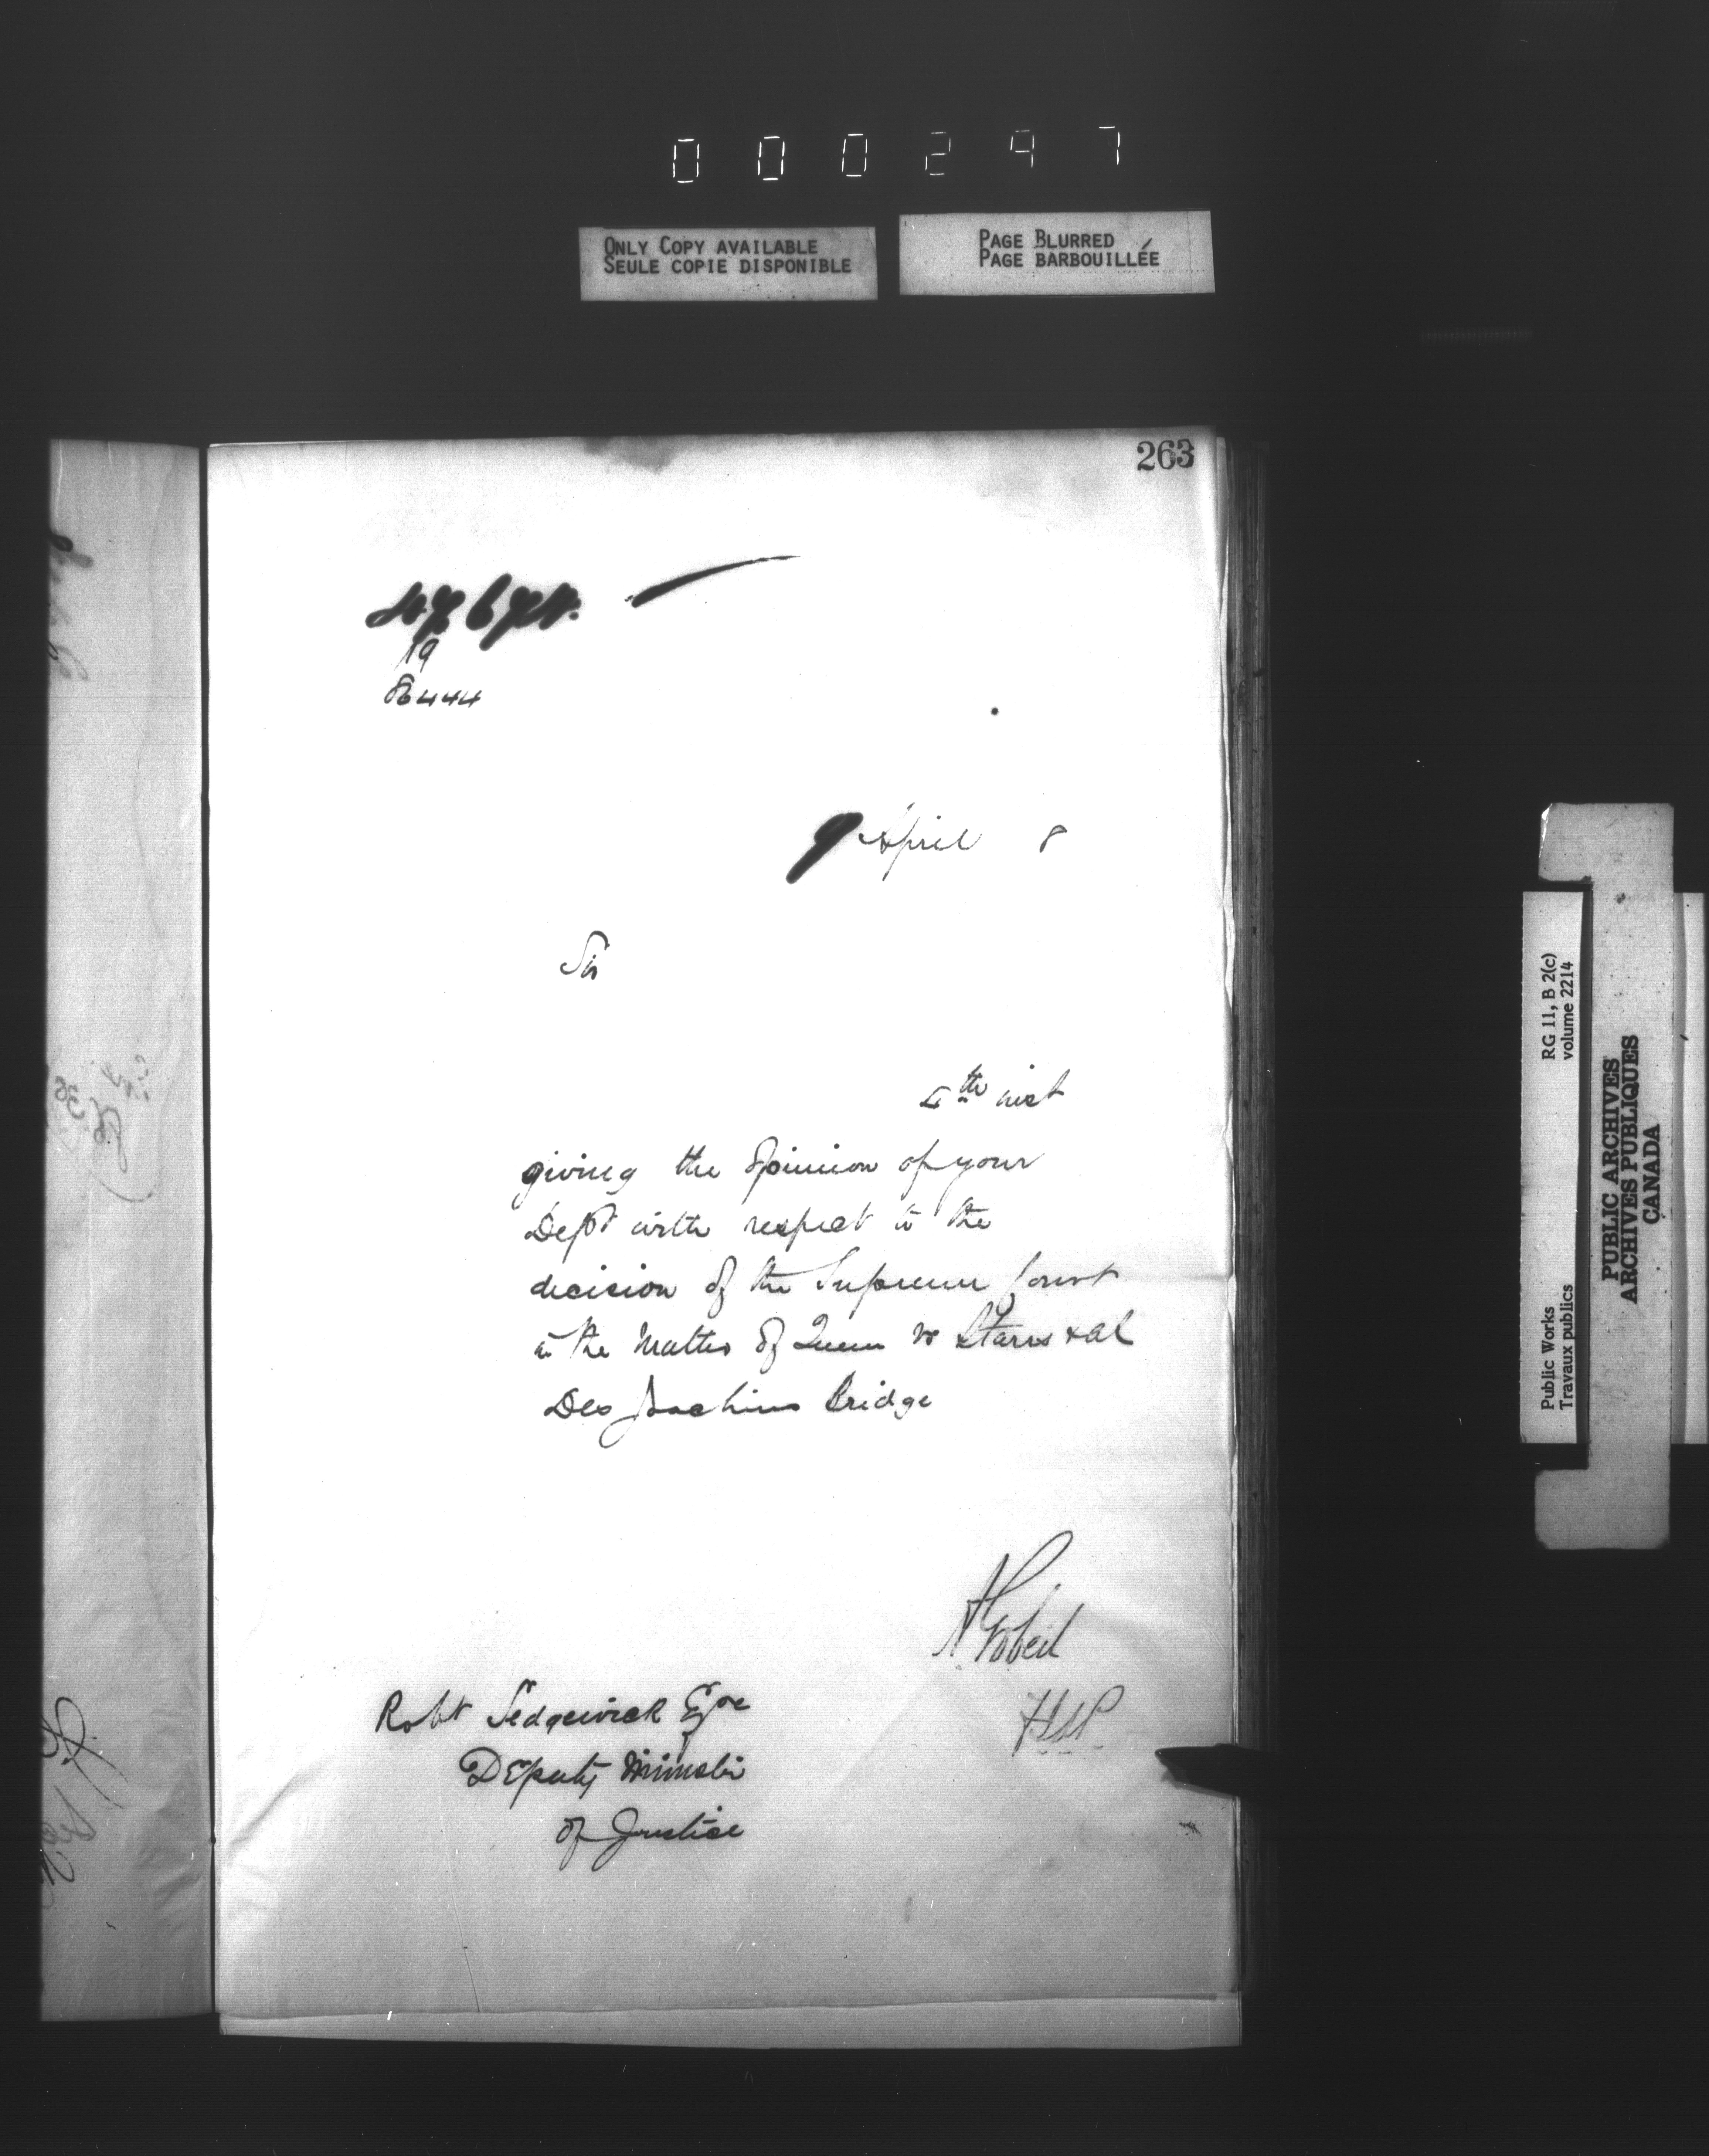 000297
ONLY COPY AVAILABLE
SEULE COPIE DISPONIBLE
PAGE BLURRED
PAGE BARBOUILLÉE
263
19
86444
9 April 8
Sir
4th inst
giving the Opinion of your
Dept with respect to the
decision of the Supreme Court
in the Matter of Queen vs Starrs & al
Des Joachims Bridge
A Gobeil
Robt Sedgewick Esqre
Deputy Minister
of Justice
RG 11, B 2(c)
volume 2214
Public Works
Travaux publics
PUBLIC ARCHIVES
ARCHIVES PUBLIQUES
CANADA